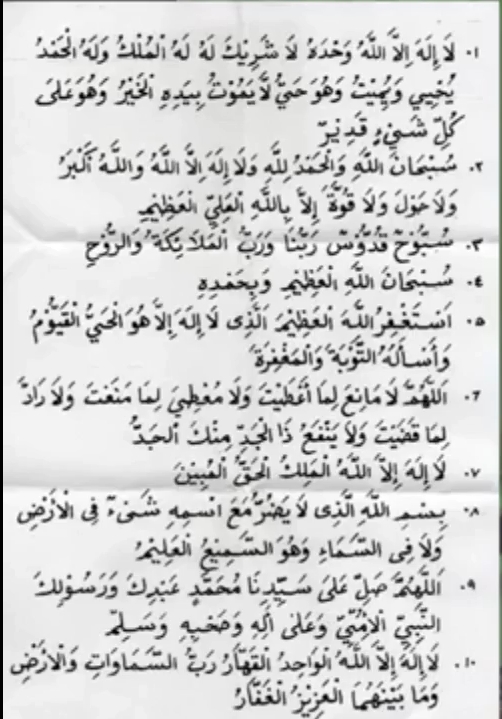 ١. لَا إِلَهَ إِلَّا اللَّهُ وَحْدَهُ لَا شَرِيْكَ لَهُ لَهُ الْمُلْكُ وَلَهُ الْحَمْدُ
يُحْيِي وَيُمِيْتُ وَهُوَ حَيٌّ لَا يَمُوْتُ بِيَدِهِ الْخَيْرُ وَهُوَ عَلَى
كُلِّ شَيْءٍ قَدِيْرٌ
٢. سُبْحَانَ اللَّهِ وَالْحَمْدُ لِلَّهِ وَلَا إِلَهَ إِلَّا اللَّهُ وَاللَّهُ أَكْبَرُ
وَلَا حَوْلَ وَلَا قُوَّةَ إِلَّا بِاللَّهِ الْعَلِيِّ الْعَظِيْمِ
٣. سُبُّوْحٌ قُدُّوْسٌ رَبُّنَا وَرَبُّ الْمَلَائِكَةِ وَالرُّوْحِ
٤. سُبْحَانَ اللَّهِ الْعَظِيْمِ وَبِحَمْدِهِ
٥. اَسْتَغْفِرُ اللَّهَ الْعَظِيْمَ الَّذِى لَا إِلَهَ إِلَّا هُوَ الْحَيُّ الْقَيُّوْمُ
وَأَسْأَلُهُ التَّوْبَةَ وَالْمَغْفِرَةَ
٦. اَللَّهُمَّ لَا مَانِعَ لِمَا أَعْطَيْتَ وَلَا مُعْطِيَ لِمَا مَنَعْتَ وَلَا رَادَّ
لِمَا قَضَيْتَ وَلَا يَنْفَعُ ذَا الْجَدِّ مِنْكَ الْجَدُّ
٧. لَا إِلَهَ إِلَّا اللَّهُ الْمَلِكُ الْحَقُّ الْمُبِيْنَ
٨. بِسْمِ اللَّهِ الَّذِى لَا يَضُرُّ مَعَ اسْمِهِ شَىْءٌ فِى الْأَرْضِ
وَلَا فِى السَّمَاءِ وَهُوَ السَّمِيْعُ الْعَلِيْمُ
٩. اَللَّهُمَّ صَلِّ عَلَى سَيِّدِنَا مُحَمَّدٍ عَبْدِكَ وَرَسُوْلِكَ
النَّبِيِّ الْأُمِّيِّ وَعَلَى آلِهِ وَصَحْبِهِ وَسَلِّمْ
١٠. لَا إِلَهَ إِلَّا اللَّهُ الْوَاحِدُ الْقَهَّارُ رَبُّ السَّمَاوَاتِ وَالْأَرْضِ
وَمَا بَيْنَهُمَا الْعَزِيْزُ الْغَفَّارُ